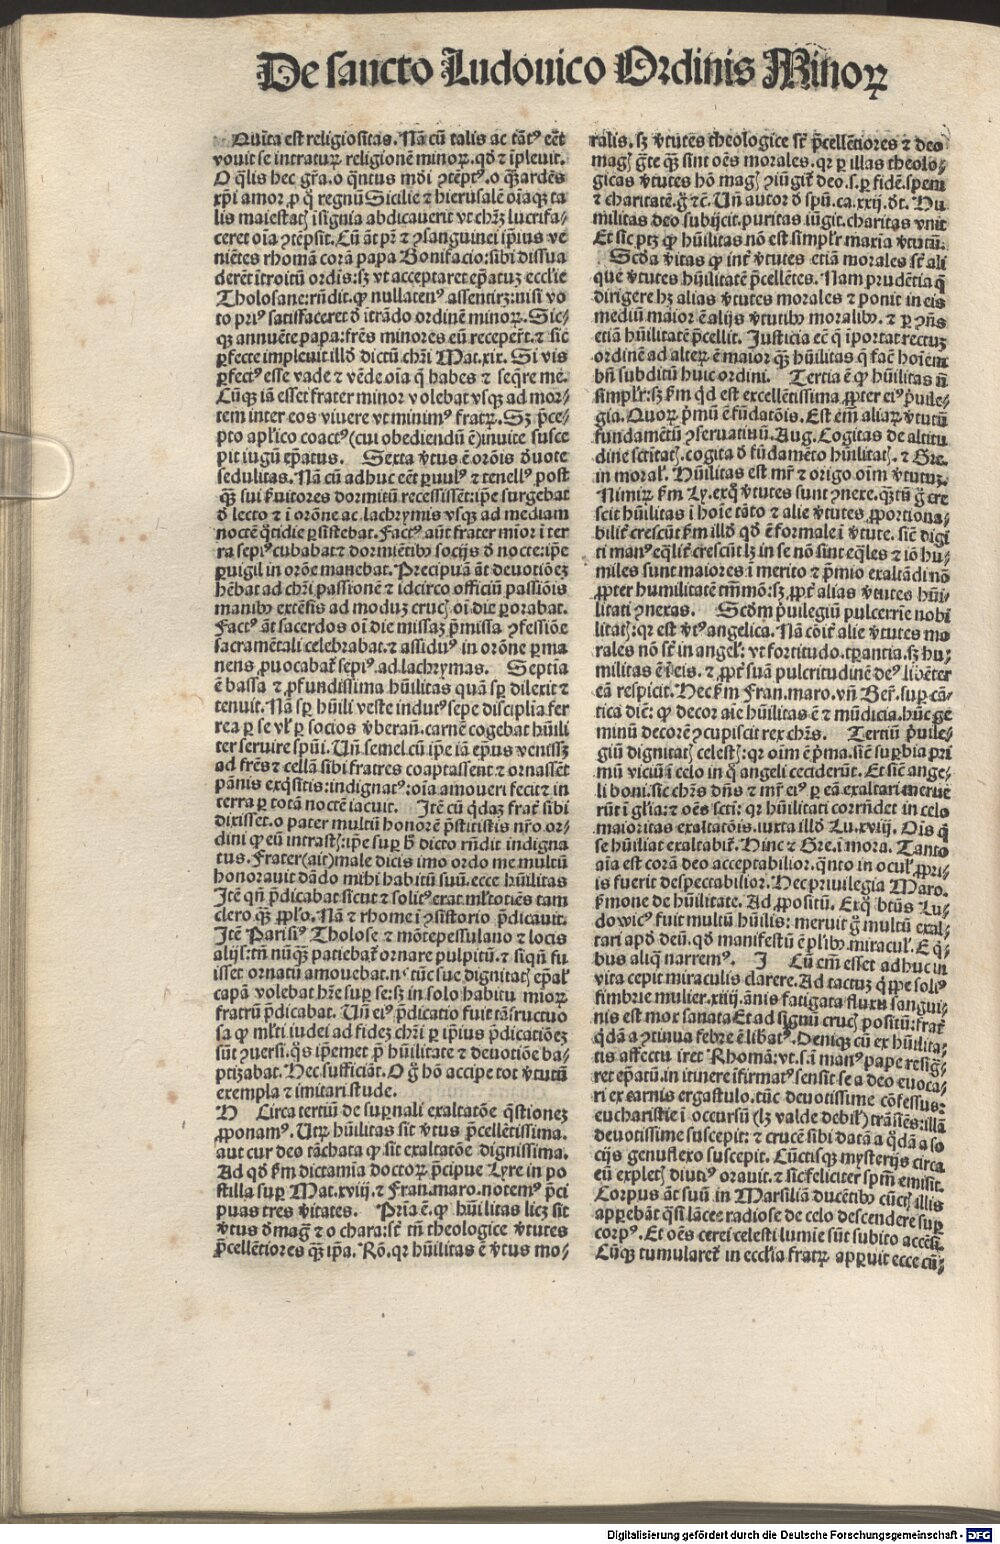 De sancto Ludouico Ordinis Minoꝝ
Quīta est religiositas. Nā cū talis ac tāt⁹ eēt
vouit se intraturꝫ religionē minoꝝ. qd̄ ⁊ īpleuit.
O q̄lis hec gr̄a. o q̄ntus mōi ꝯtēpt⁹. o q̄ꝫ ardēs
xp̄i amor ꝓ q̄ regnū Sicilie ⁊ hierusalē oīaqꝫ ta
lis maiestatꝭ īsignia abdicauerit vt chr̄ꝫ lucrifa⸗
ceret oīa ꝯtēpsit. Cū āt pr̄ ⁊ ꝯsanguinei ip̄ius ve
niētes rhomā corā papa Bonifacio: sibi dissua
derēt ītroitū ordīs: sꝫ vt acceptaret ep̄atuꝫ eccl̄ie
Tholosane: rn̄dit. ꝙ nullaten⁹ assentirꝫ: nisi vo
to pri⁹ satisfaceret d̄ itrādo ordinē minoꝝ. Sic⸗
qꝫ annuēte papa: fr̄es minores eū receper̄t. ⁊ sic
ꝑfecte impleuit illd̄ dictū chr̄i Mat. xix. Si vis
ꝑfect⁹ esse vade ⁊ vēde oīa q̄ habes ⁊ seq̄re me.
Cūqꝫ iā esset frater minor volebat vsqꝫ ad mor⸗
tem inter eos viuere vt minim⁹ fratꝝ. Sꝫ p̄ce⸗
pto apl̄ico coact⁹ (cui obediendū ē) inuite susce
pit iugū ep̄atus. Sexta v̄tus ē orōis d̄uote
sedulitas. Nā cū adhuc eēt ꝑuul⁹ ⁊ tenell⁹ post
qꝫ sui ẜuitores dormitū recessissēt: ip̄e surgebat
d̄ lecto ⁊ ī orōne ac lachrymis vsqꝫ ad mediam
noctē q̄tidie ꝑsistebat. Fact⁹ aūt frater mīor ī ter
ra sepi⁹ cubabat ⁊ dormiētibꝰ socijs d̄ nocte: ip̄e
ꝑuigil in orōe manebat. Precipuā āt deuotiōeꝫ
hēbat ad chr̄i passionē ⁊ idcirco officiū passiōis
manibꝰ extēsis ad moduꝫ crucꝭ oī die ꝑorabat.
Fact⁹ āt sacerdos oī die missaꝫ p̄missa ꝯfessiōe
sacramētali celebrabat. ⁊ assidu⁹ in orōne ꝑma
nens ꝓuocabat̄ sepi⁹ ad lachrymas. Septīa
ē bassa ⁊ ꝓfundissima hūilitas quā sꝑ dilexit ⁊
tenuit. Nā sꝑ hūili veste indut⁹ sepe disciplīa fer
rea ꝑ se vl̄ ꝑ socios v̄berān. carnē cogebat hūili
ter seruire spūi. Vn̄ semel cū ip̄e iā ep̄us venissꝫ
ad fr̄es ⁊ cellā sibi fratres coaptassent ⁊ ornassēt
pānis exq̄sitis: indignat⁹: oīa amoueri fecit ⁊ in
terra ꝑ totā noctē iacuit. Itē cū q̄daꝫ frat̄ sibi
dixisset. o pater multū honorē p̄stitistis nr̄o or⸗
dini ꝙ eū intrastꝭ: ip̄e suꝑ h̄ dicto rn̄dit indigna
tus. Frater (ait) male dicis imo ordo me multū
honorauit dādo mihi habitū suū. ecce hūilitas
Itē qn̄ p̄dicabat sicut ⁊ solit⁹ erat ml̄totiēs tam
clero qꝫ ppl̄o. Nā ⁊ rhome ī ꝯsistorio p̄dicauit.
Itē Parisi⁹ Tholose ⁊ mōtepessulano ⁊ locis
alijs: tn̄ nūqꝫ patiebat̄ ornare pulpitū. ⁊ siqn̄ fu
isset ornatū amouebat. nec tūc sue dignitatꝭ ep̄al̄
capā volebat hr̄e suꝑ se: sꝫ in solo habitu mioꝝ
fratrū p̄dicabat. Vn̄ ei⁹ p̄dicatio fuit tā fructuo
sa ꝙ ml̄ti iudei ad fideꝫ chr̄i ꝑ ip̄ius p̄dicatiōeꝫ
sūt ꝯuersi. q̄s ip̄emet p̄ hūilitate ⁊ deuotiōe ba⸗
ptizabat. Hec sufficiāt. O g̊ hō accipe tot v̄tutū
exempla ⁊ imitari stude.
H Circa tertiū de suꝑnali exaltatōe q̄stioneꝫ
ꝓponam⁹. Utꝝ hūilitas sit v̄tus p̄cellētissima.
aut cur deo tā chata ꝙ sit exaltatōe dignissima.
Ad qd̄ ẜm dictamīa doctoꝝ p̄cipue Lyre in po
stilla suꝑ Mat. xviij. ⁊ Fran. maro. notem⁹ p̄ci
puas tres v̄itates. Prīa ē. ꝙ hūilitas licꝫ sit
v̄tus d̄ magꝭ ⁊ o chara: sr̄t tn̄ theologice v̄tutes
p̄cellētiores qꝫ ip̄a. Rō. qr hūilitas ē v̄tus mo⸗
ralis. sꝫ v̄tutes theologice sr̄t p̄cellētiores ⁊ deo
magꝭ g̊te qꝫ sint oēs morales. qr ꝑ illas theolo⸗
gicas v̄tutes hō magꝭ ꝯiūgit̄ deo. s. ꝑ fidē. spem
⁊ charitatē. g̊ ⁊c̄. Vn̄ autor d̄ spū. ca. xxij. d̄t. Hu
militas deo subijcit. puritas iūgit. charitas vnit
Et sic ptꝫ ꝙ hūilitas nō est simpl̄r maxīa v̄tutū.
Scd̄a v̄itas ꝙ int̄ v̄tutes etiā morales sr̄t ali
que v̄tutes hūilitatē p̄cellētes. Nam prudētia q̄
dirigere hꝫ alias v̄tutes morales ⁊ ponit in eis
mediū maior ē alijs v̄tutibꝰ moralibꝰ. ⁊ ꝑ ꝯn̄s
etiā hūilitatē p̄cellit. Justicia ec̄ q̄ īportat rectuꝫ
ordinē ad alterꝫ ē maior qꝫ hūilitas q̄ faē hoīem
bn̄ subditū huic ordini. Tertia ē ꝙ hūilitas n̄
simpl̄r: sꝫ ẜm qd̄ est excellētissima ꝓpter ei⁹ p̄uile⸗
gia. Quoꝝ p̄mū ē fūdatōis. Est em̄ aliaꝝ v̄tutū
fundamētū ꝯseruatiuū. Aug. Cogitas de altitu
dine scītatꝭ. cogita d̄ fūdamēto hūilitatꝭ. ⁊ Gre.
in moral̄. Hūilitas est mr̄ ⁊ origo oīm v̄tutuꝫ.
Nimiꝝ ẜm Ly. ex q̊ v̄tutes sunt ꝯnexe. qꝫtū g̊ cre
scit hūilitas ī hoīe tāto ⁊ alie v̄tutes ꝓportiona⸗
bilit̄ crescūt ẜm illd̄ qd̄ ē formale ī v̄tute. sic̄ digi
ti man⁹ eq̄lit̄ crescūt lꝫ in se nō sint eq̄les ⁊ iō hu⸗
miles sunt maiores ī merito ⁊ p̄mio exaltādi nō
ꝓpter humilitatē tm̄mō: sꝫ ꝓpt̄ alias v̄tutes hūi⸗
litati ꝯnexas. Scd̄m p̄uilegiū pulcerrīe nobi
litatꝭ: qr est v̄t⁹ angelica. Nā cōit̄ alie v̄tutes mo
rales nō sr̄t in angel̄: vt fortitudo. tꝑantia. sꝫ hu⸗
militas ē ī eis. ⁊ ꝓpt̄ suā pulcritudinē de⁹ libēter
eā respicit. Hec ẜm Fran. maro. vn̄ Ber̄. suꝑ cā⸗
tica dic̄: ꝙ decor aīe hūilitas ē ⁊ mūdicia. hūc ge
minū decorē ꝯcupiscit rex chr̄s. Tertiū p̄uile⸗
giū dignitatꝭ celestꝭ: qr oīm ē p̄ma. sic̄ suꝑbia pri
mū viciū ī celo in q̊ angeli ceciderūt. Et sic̄ ange⸗
li boni. sic chr̄s dn̄s ⁊ mr̄ ei⁹ ꝑ eā exaltari meruē
rūt ī gl̄ia: ⁊ oēs sc̄ti: qr hūilitati corrn̄det in celo
maioritas exaltatōis. iuxta illd̄ Lu. xviij. Oīs q̄
se hūiliat exaltabit̄. Hinc ⁊ Gre. ī mora. Tanto
aīa est corā deo acceptabilior. q̄nto in ocul̄ ꝓpri⸗
is fuerit despectabilior. Hec priuilegia Maro.
ẜmone de hūilitate. Ad ꝓpositū. Ex q̊ btūs Lu⸗
dowic⁹ fuit multū hūilis: meruit g̊ multū exal⸗
tari apd̄ deū. qd̄ manifestū ē pl̄ibꝰ miracul̄. E q̊⸗
bus aliq̄ narrem⁹. I Cū em̄ esset adhuc in
vita cepit miraculis clarere. Ad tactuꝫ q̄ppe soli⁹
fimbrie mulier. xiiij. ānis fatigata fluxu sangui⸗
nis est mox sanata Et ad signū crucꝭ positū: frat̄
q̄dā a ꝯtinua febre ē libat⁹. Deniqꝫ cū ex hūilita⸗
tis affectu iret Rhomā: vt. s. ī man⁹ pape resig⸗
ret ep̄atū. in itinere īfirmat⁹ sensit se a deo euoca⸗
ri ex carnis ergastulo. tūc deuotissime cōfessus:
eucharistie ī occursū (lꝫ valde debil̄) trāsiēs: illā
deuotissime suscepit: ⁊ crucē sibi datā a q̊dā a so
cijs genuflexo suscepit. Cūctisqꝫ mysterijs circa
eū expletꝭ diuti⁹ orauit. ⁊ sic feliciter spm̄ emisit.
Corpus āt suū in Marsiliā ducētibꝰ cūctꝭ illis
apparebāt q̄si lācee radiose de celo descendere suꝑ
corp⁹. Et oēs cerei celesti lumīe sūt subito accēsi.
Cūqꝫ tumularet̄ in eccl̄ia fratꝝ apparuit ecce cū⸗
Digitalisierung gefördert durch die Deutsche Forschungsgemeinschaft - DFG